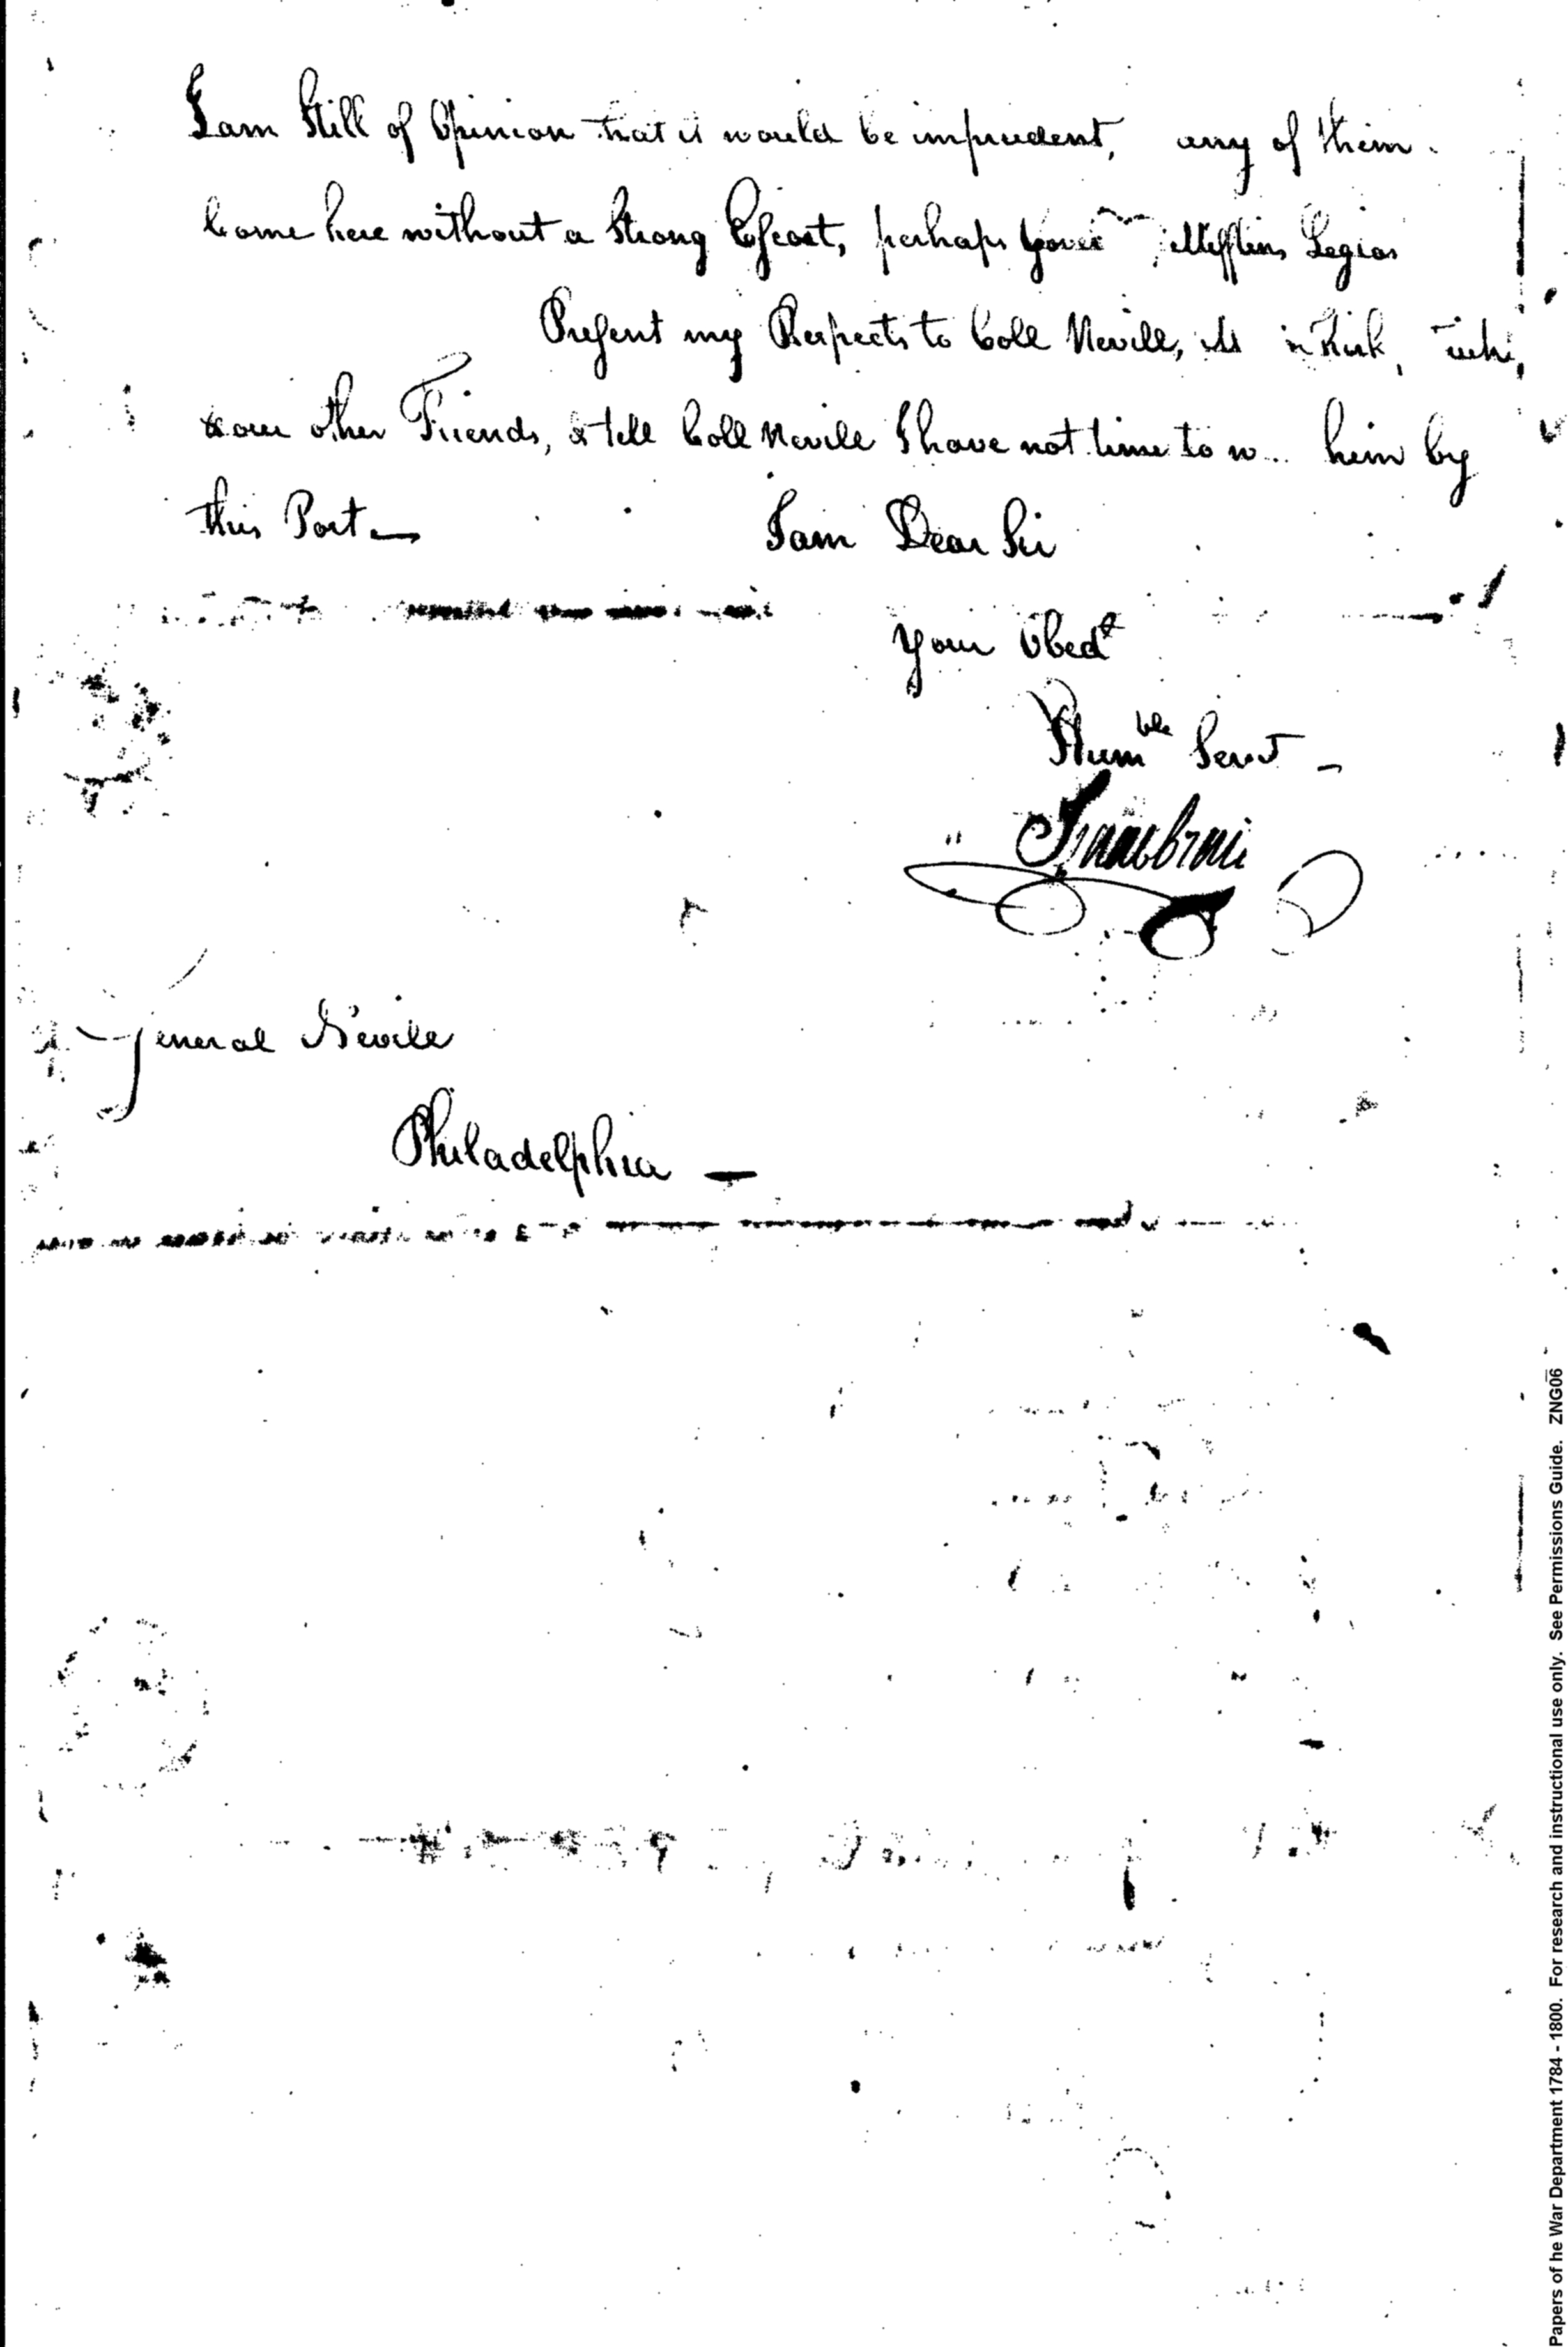 I am Still of Opinion that it would be imprudent, any of them
Come here without a Strong Escort, perhaps Mifflins Legion
Present my Respects to Coll Nevill, Kirk,
& our other Friends, & tell Coll Nevile I have not time to him by
this Post —
I am Dear Sir
Your Obedt
Humble Servt —
Isaac Craig
General Nevile
Philadelphia —
Papers of he War Department 1784 - 1800. For research and instructional use only. See Permissions Guide. ZNG06